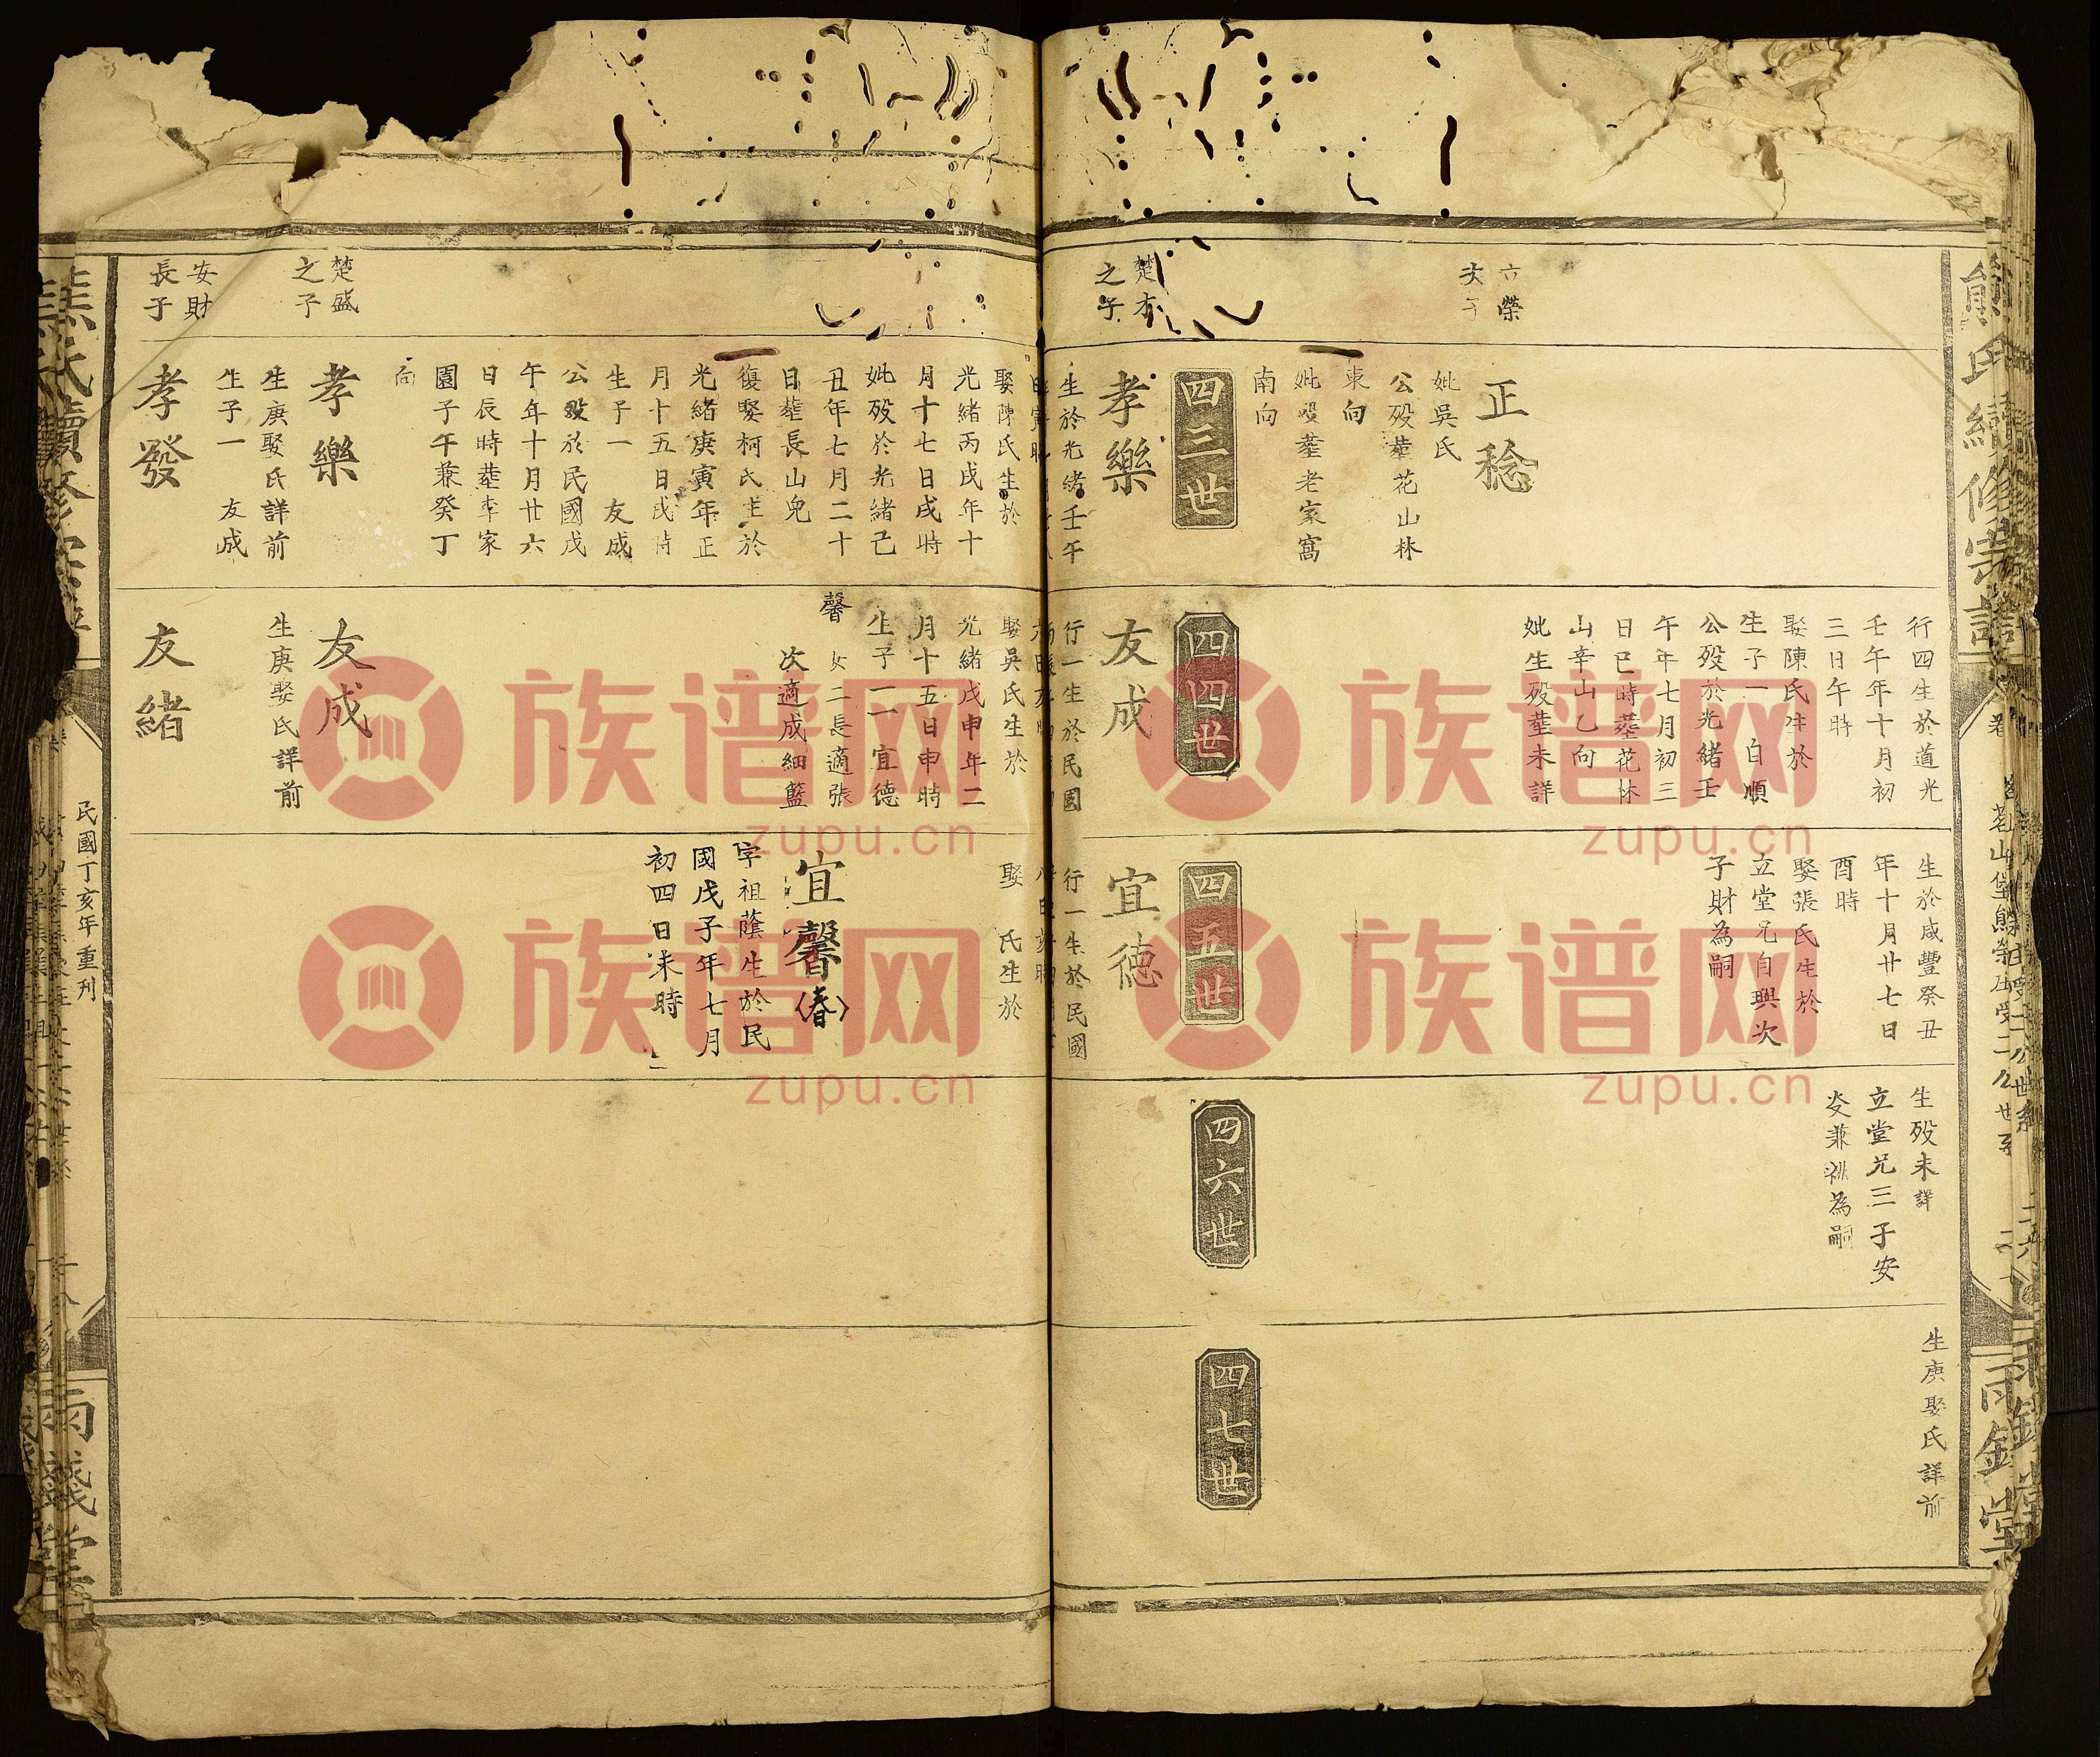 熊氏續修宗譜
兩錢堂
行四生於道光
壬午年十月初
三日午時
娶陳氏生於
生子一 自順
公殁於光緒壬
午年七月初三
日巳時塟花林
山辛山乙向
妣生殁塟未詳
生於咸豐癸丑
年十月廿七日
酉時
娶張氏生於
立堂兄自興次
子財為嗣
生殁未詳
立堂兄三子安
炎兼祧為嗣
生庚娶氏詳前
次子
正稔
妣吳氏
公殁塟花山林
東向
妣殁塟老家窩
南向
四三世
四四世
四五世
四六世
四七世
之子
孝樂
生於光緒壬午
娶陳氏生於
光緒丙戌年十
月十七日戌時
妣殁於光緒己
丑年七月二十
日塟長山兜
復娶柯氏生於
光緒庚寅年正
月十五日戌時
生子一 友成
公殁於民國戊
午年十月廿六
日辰時塟李家
園子午兼癸丁
向
友成
行一生於民國
娶吳氏生於
光緒戊申年二
月十五日申時
生子一 宜德
馨
女二長適張
次適成細籃
宜德
行一生於民國
娶 氏生於
宜馨〈春〉
字祖蔭生於民
國戊子年七月
初四日未時
楚盛
之子
孝樂
生庚娶氏詳前
生子一 友成
友成
生庚娶氏詳前
安財
長子
孝發
友緒
民國丁亥年重刊
族谱网
zupu.cn
族谱网
zupu.cn
族谱网
zupu.cn
族谱网
zupu.cn